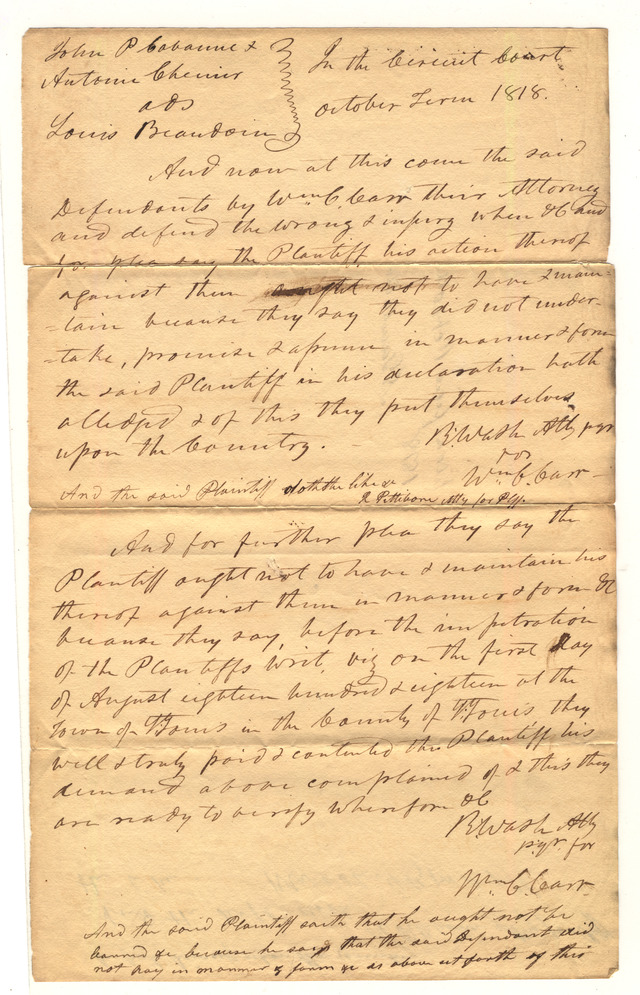 John P Cabanne &
Antoine Chenier
ads
Louis Beaudoin
In the Circuit Court
October Term 1818.
And now at this come the said
Defendants by Wm C. Carr their Attorney
and defend the wrong & injury when &C and
for plea say the Plantiff his action thereof
against them ought not to have & main-
-tain because they say they did not under-
-take, promise & assume in manner & form
the said Plantiff in his declaration hath
alledged & of this they put themselves
upon the Country. -
R. Wash Atty
for
Wm C. Carr -
And the said Plaintiff doth the like &c
R Pettibone Atty for Plff.
And for further plea they say the
Plantiff ought not to have & maintain his
thereof against them in manner & form &C
because they say, before the impetration
of the Plantiffs writ, viz on the first day
of August eighteen hundred & eighteen at the
Town of St Louis in the County of St Louis they
well & truly paid & contented the Plantiff his
demand above complained of & this they
are ready to verify wherefore &C
R. Wash Atty
for
Wm C. Carr
And the said Plaintiff saith that he ought not be
barred &c because he says that the said Defendant did
not pay in manner & form &c as above set forth & of this